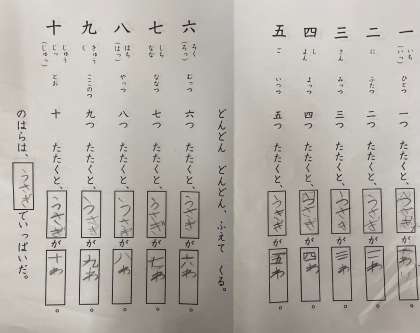 一 いち (いっ) ひとつ 一つ たたくと、うさぎが 一わ。
二 に ふたつ 二つ たたくと、うさぎが 二わ。
三 さん みっつ 三つ たたくと、うさぎが 三わ。
四 し よん よっつ 四つ たたくと、うさぎが 四わ。
五 ご いつつ 五つ たたくと、うさぎが 五わ。
どんどん どんどん、ふえて くる。
六 ろく (ろっ) むっつ 六つ たたくと、うさぎが 六わ。
七 しち なな ななつ 七つ たたくと、うさぎが 七わ。
八 はち (はっ) やっつ 八つ たたくと、うさぎが 八わ。
九 きゅう く ここのつ 九つ たたくと、うさぎが 九わ。
十 じゅう じっ (じゅっ) とお 十 たたくと、うさぎが 十わ。
のはらは、うさぎでいっぱいだ。